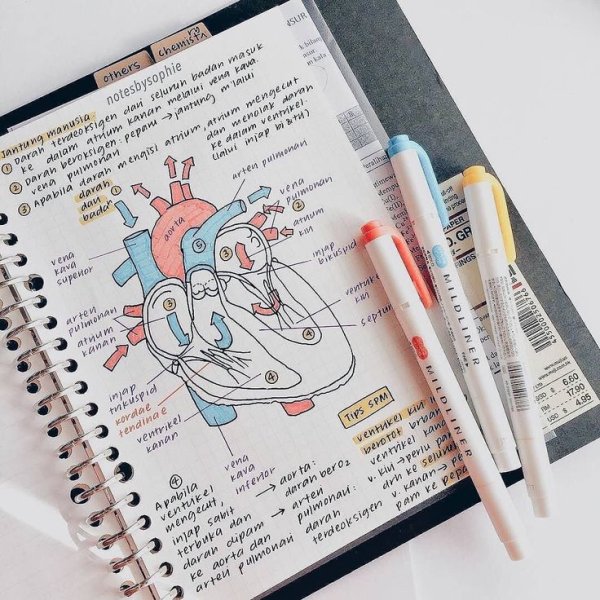 others
chemistry
notesbysophie
Jantung manusia
① Darah terdeoksigen dari seluruh badan masuk
ke dalam atrium kanan melalui vena kava.
② Darah beroksigen: pepanu → jantung melalui
vena pulmonari
③ Apabila darah mengisi atrium, atrium mengecut
dan menolak darah
ke dalam ventrikel.
(lalui injap bi & tri)
darah
dari
badan
①
aorta
arteri pulmonari
vena
pulmonari
②
atrium
kiri
injap
bikuspid
ventrikel
kiri
septum
vena
kava
superior
arteri
pulmonari
atrium
kanan
injap
trikuspid
kordae
tendinae
ventrikel
kanan
vena
kava
inferior
③
③
④
④
⑤
Tips SPM
ventrikel kiri
berotot
ventrikel kana
v. kiri → penu
drh ke seluruh
v. kanan →
pam ke
④
Apabila
ventrikel
mengecut,
injap sabit
terbuka dan
darah dipam
ke aorta dan
arteri pulmonari
→ aorta:
darah berO₂
→ arteri
pulmonari:
darah
terdeoksigen
MILDLINER
MILDLINER
6.60
17.90
4.95